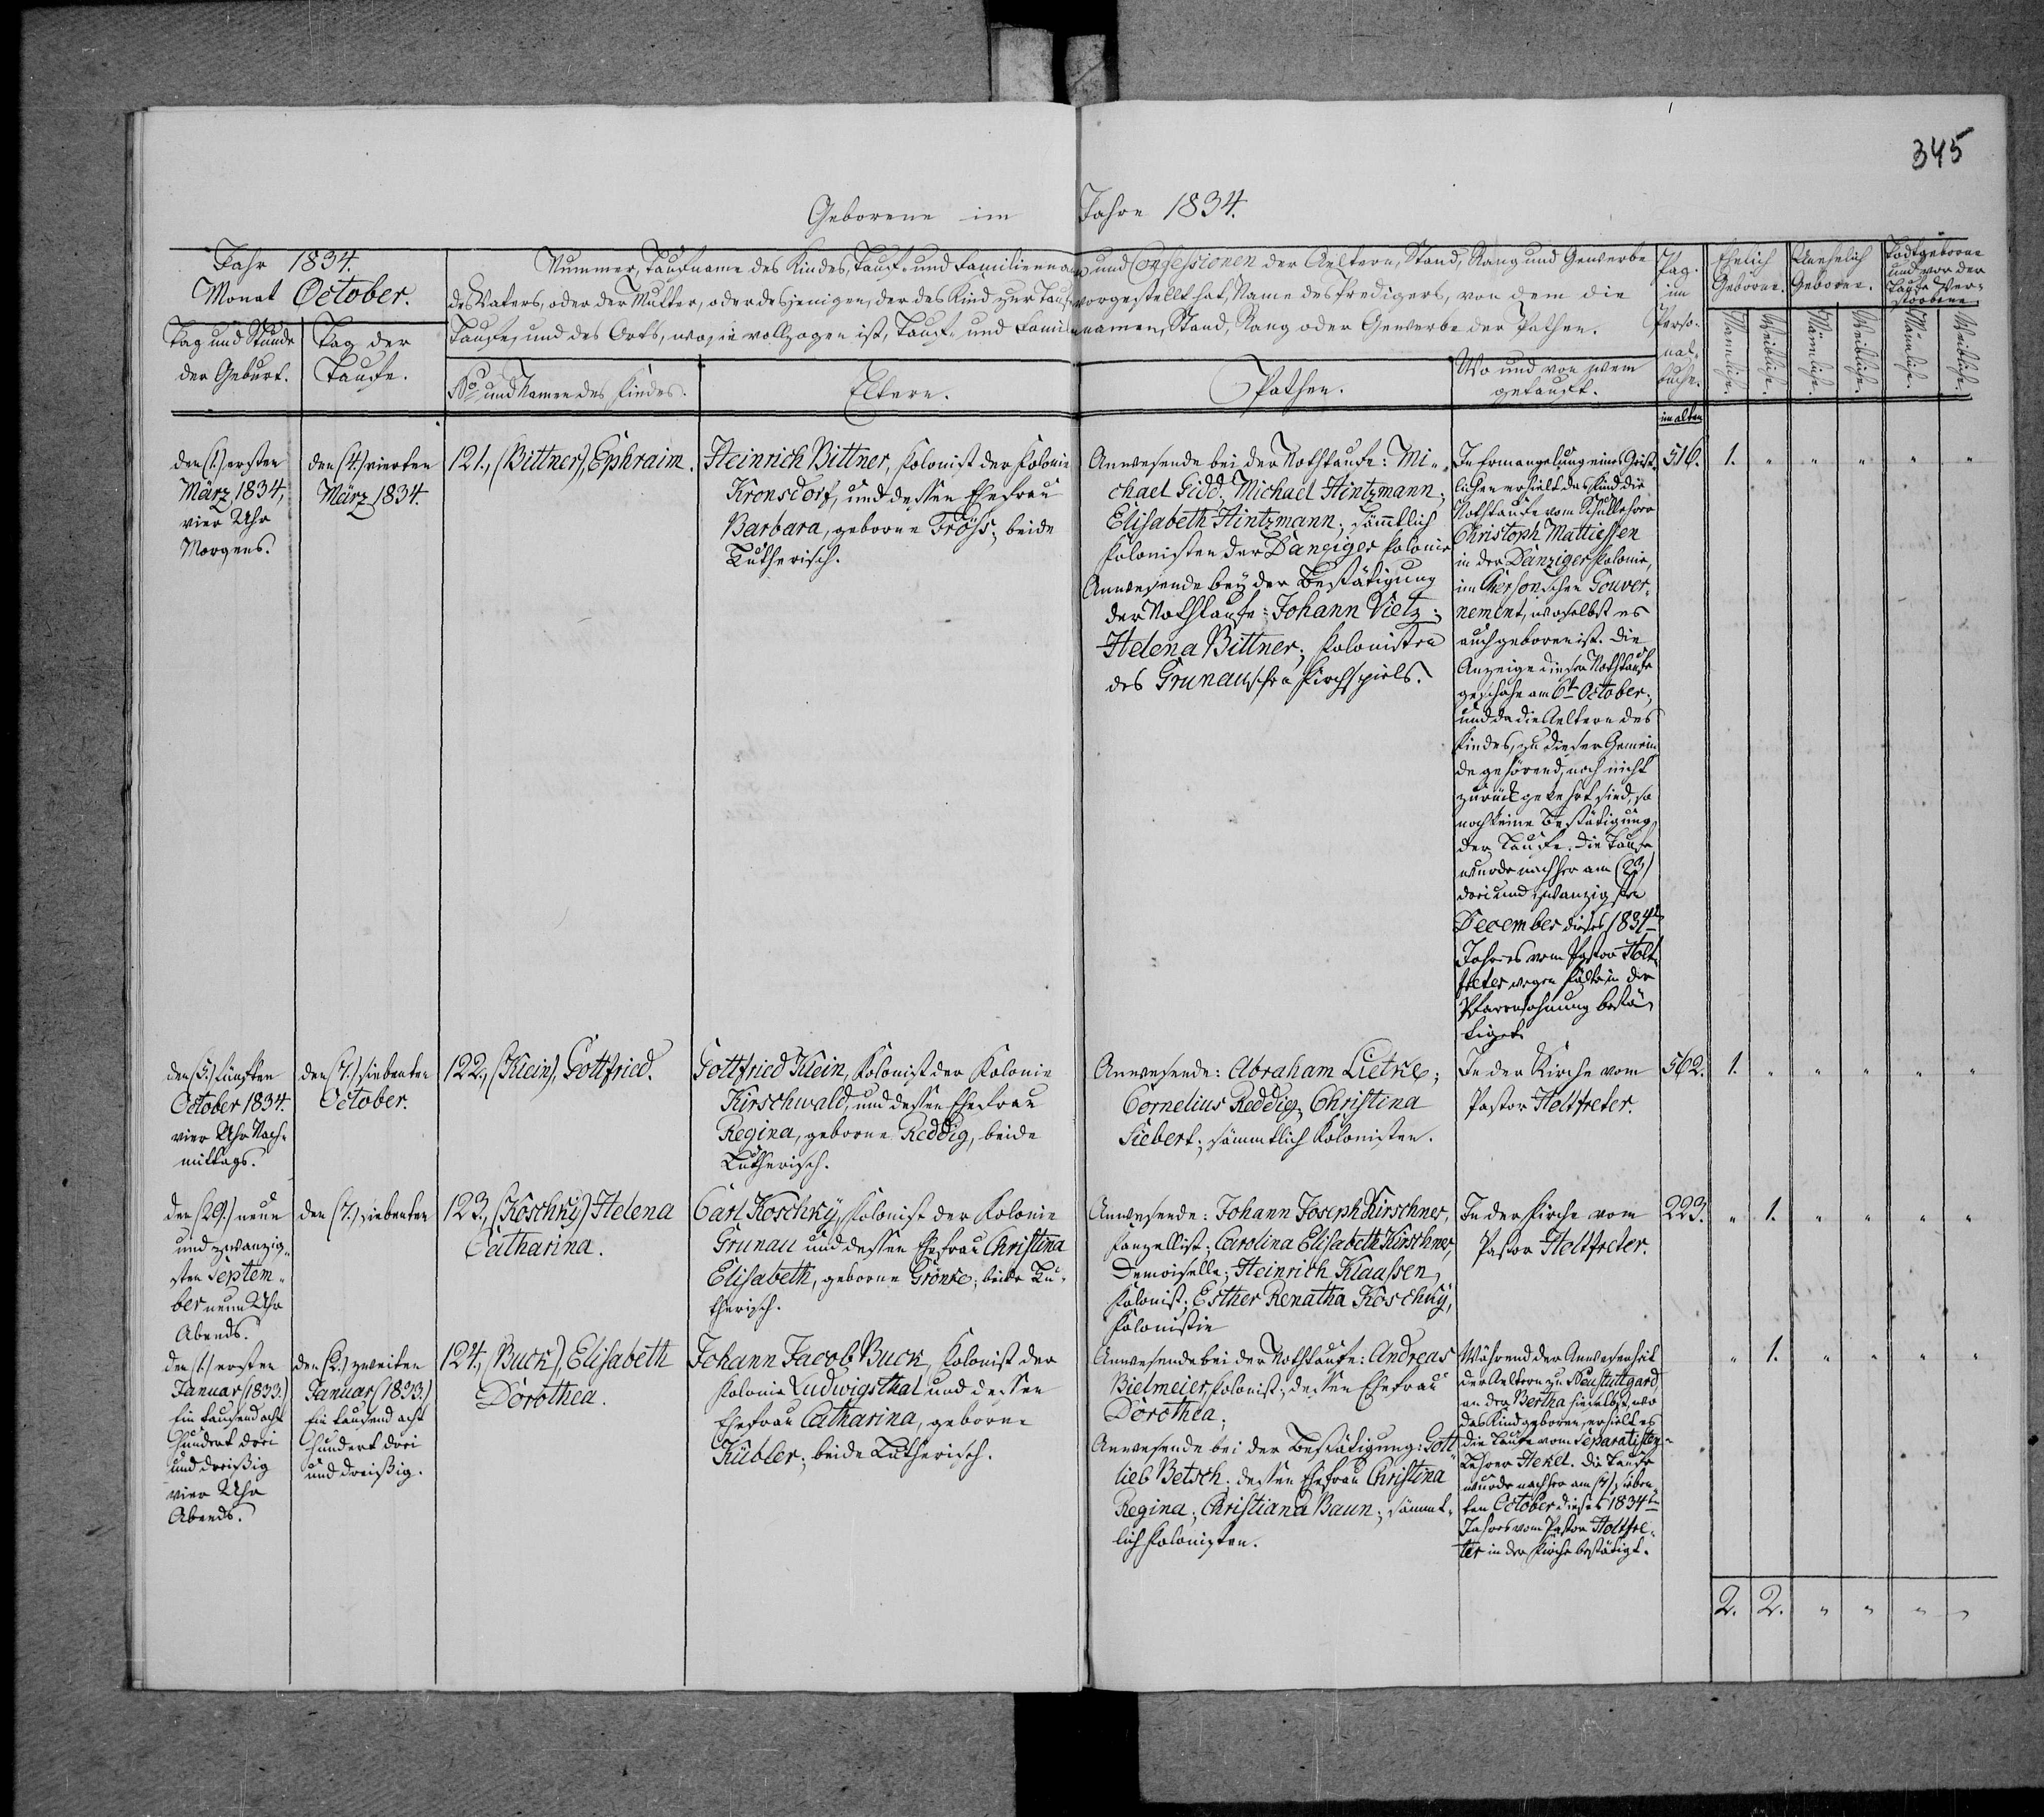 345
Geborene im Jahre 1834.
Jahr 1834.
Monat October.
Tag und Stunde
der Geburt.
Tag der
Taufe.
Nummer, Taufname des Kindes, Tauf- und Familiennamen und Confessionen der Aeltern, Stand, Rang und Gewerbe
des Vaters, oder der Mutter, oder desjenigen, der das Kind zur Taufe vorgestellt hat, Name des Predigers, von dem die
Taufe, und des Orts, wo sie vollzogen ist, Tauf- und Familiennamen, Stand, Rang oder Gewerbe der Pathen.
No. und Namen des Kindes.
Eltern.
Pathen.
Wo und von wem
getauft.
Pag.
im
Perso-
nal-
buche.
Ehelich
Geborne.
Unehelich
Geborne.
Todtgeborne
und vor der
Taufe Ver-
storbene
Männliche.
Weibliche.
Männliche.
Weibliche.
Männliche.
Weibliche.
im alten
den (1.) ersten
März 1834,
vier Uhr
Morgens.
den (4.) vierten
März 1834.
121., (Bittner), Ephraim.
Heinrich Bittner, Kolonist der Kolonie
Kronsdorf, und dessen Ehefrau
Barbara, geborne Tröss; beide
Lutherisch.
Anwesende bei der Nothtaufe: Mi-
chael Gidd; Michael Hintzmann;
Elisabeth Hintzmann; sämtlich
Kolonisten der Danziger Kolonie
Anwesende bey der Bestätigung
der Nothtaufe: Johann Vietz;
Helena Bittner; Kolonisten
des Grunauschen Kirchspiels.
In Ermangelung eines Geist-
lichen erhielt das Kind die
Nothtaufe vom Schullehrer
Christoph Mattiessen
in der Danziger Kolonie,
im Chersonschen Gouver-
nement, woselbst es
auch geboren ist. Die
Anzeige dieser Nothtaufe
geschahe am 6t October;
und da die Aeltern des
Kindes, zu dieser Gemein-
de gehörend, noch nicht
zurückgekehrt sind, so
noch keine Bestätigung
der Taufe. Die Taufe
wurde nachher am (23)
drei und zwanzigsten
December dieses 1834t
Jahres vom Pastor Holt-
freter wegen Kälte in der
Pfarrwohnung bestä-
tiget
516. 1. " " " " "
den (5.) fünften
October 1834.
vier Uhr Nach-
mittags.
den (7.) siebenten
October.
122., (Klein), Gottfried.
Gottfried Klein, Kolonist der Kolonie
Kirschwald, und dessen Ehefrau
Regina, geborne Reddig, beide
Lutherisch.
Anwesende: Abraham Lietke;
Cornelius Reddig; Christina
Siebert; sämmtlich Kolonisten.
In der Kirche vom
Pastor Holtfreter.
562. 1. " " " " "
den (29.) neun
und zwanzig-
sten Septem-
ber neun Uhr
Abends.
den (7.) siebenten
123., (Koschky) Helena
Catharina.
Carl Koschky, Kolonist der Kolonie
Grunau und dessen Ehefrau Christina
Elisabeth, geborne Grönke; beide Lu-
therisch.
Anwesende: Johann Joseph Kirschner,
Kanzellist; Carolina Elisabeth Kirschner,
Demoiselle; Heinrich Klaassen,
Kolonist; Esther Renatha Koschky,
Kolonistin
In der Kirche vom
Pastor Holtfreter.
223. " 1. " " " "
den (1.) ersten
Januar (1833.)
Ein tausend acht
hundert drei
und dreißig
vier Uhr
Abends.
den (2.) zweiten
Januar (1833.)
Ein tausend acht
hundert drei
und dreißig.
124., (Buck), Elisabeth
Dorothea.
Johann Jacob Buck, Kolonist der
Kolonie Ludwigsthal und dessen
Ehefrau Catharina, geborne
Kübler; beide Lutherisch.
Anwesende bei der Nothtaufe: Andreas
Bielmeier, Kolonist; dessen Ehefrau
Dorothea;
Anwesende bei der Bestätigung: Gott-
lieb Betsch; dessen Ehefrau Christina
Regina; Christiana Baun; sämmt-
lich Kolonisten.
Während der Anwesenheit
der Aeltern zu Neustuttgard
an der Bertha hieselbst, wo
das Kind geboren, erhielt es
die Taufe vom Separatisten-
Lehrer Hekel. Die Taufe
wurde nachher am (7) sieben-
ten October dieses 1834ten
Jahres vom Pastor Holtfre-
ter in der Kirche bestätigt.
" 1. " " " "
2. 2. " " " "